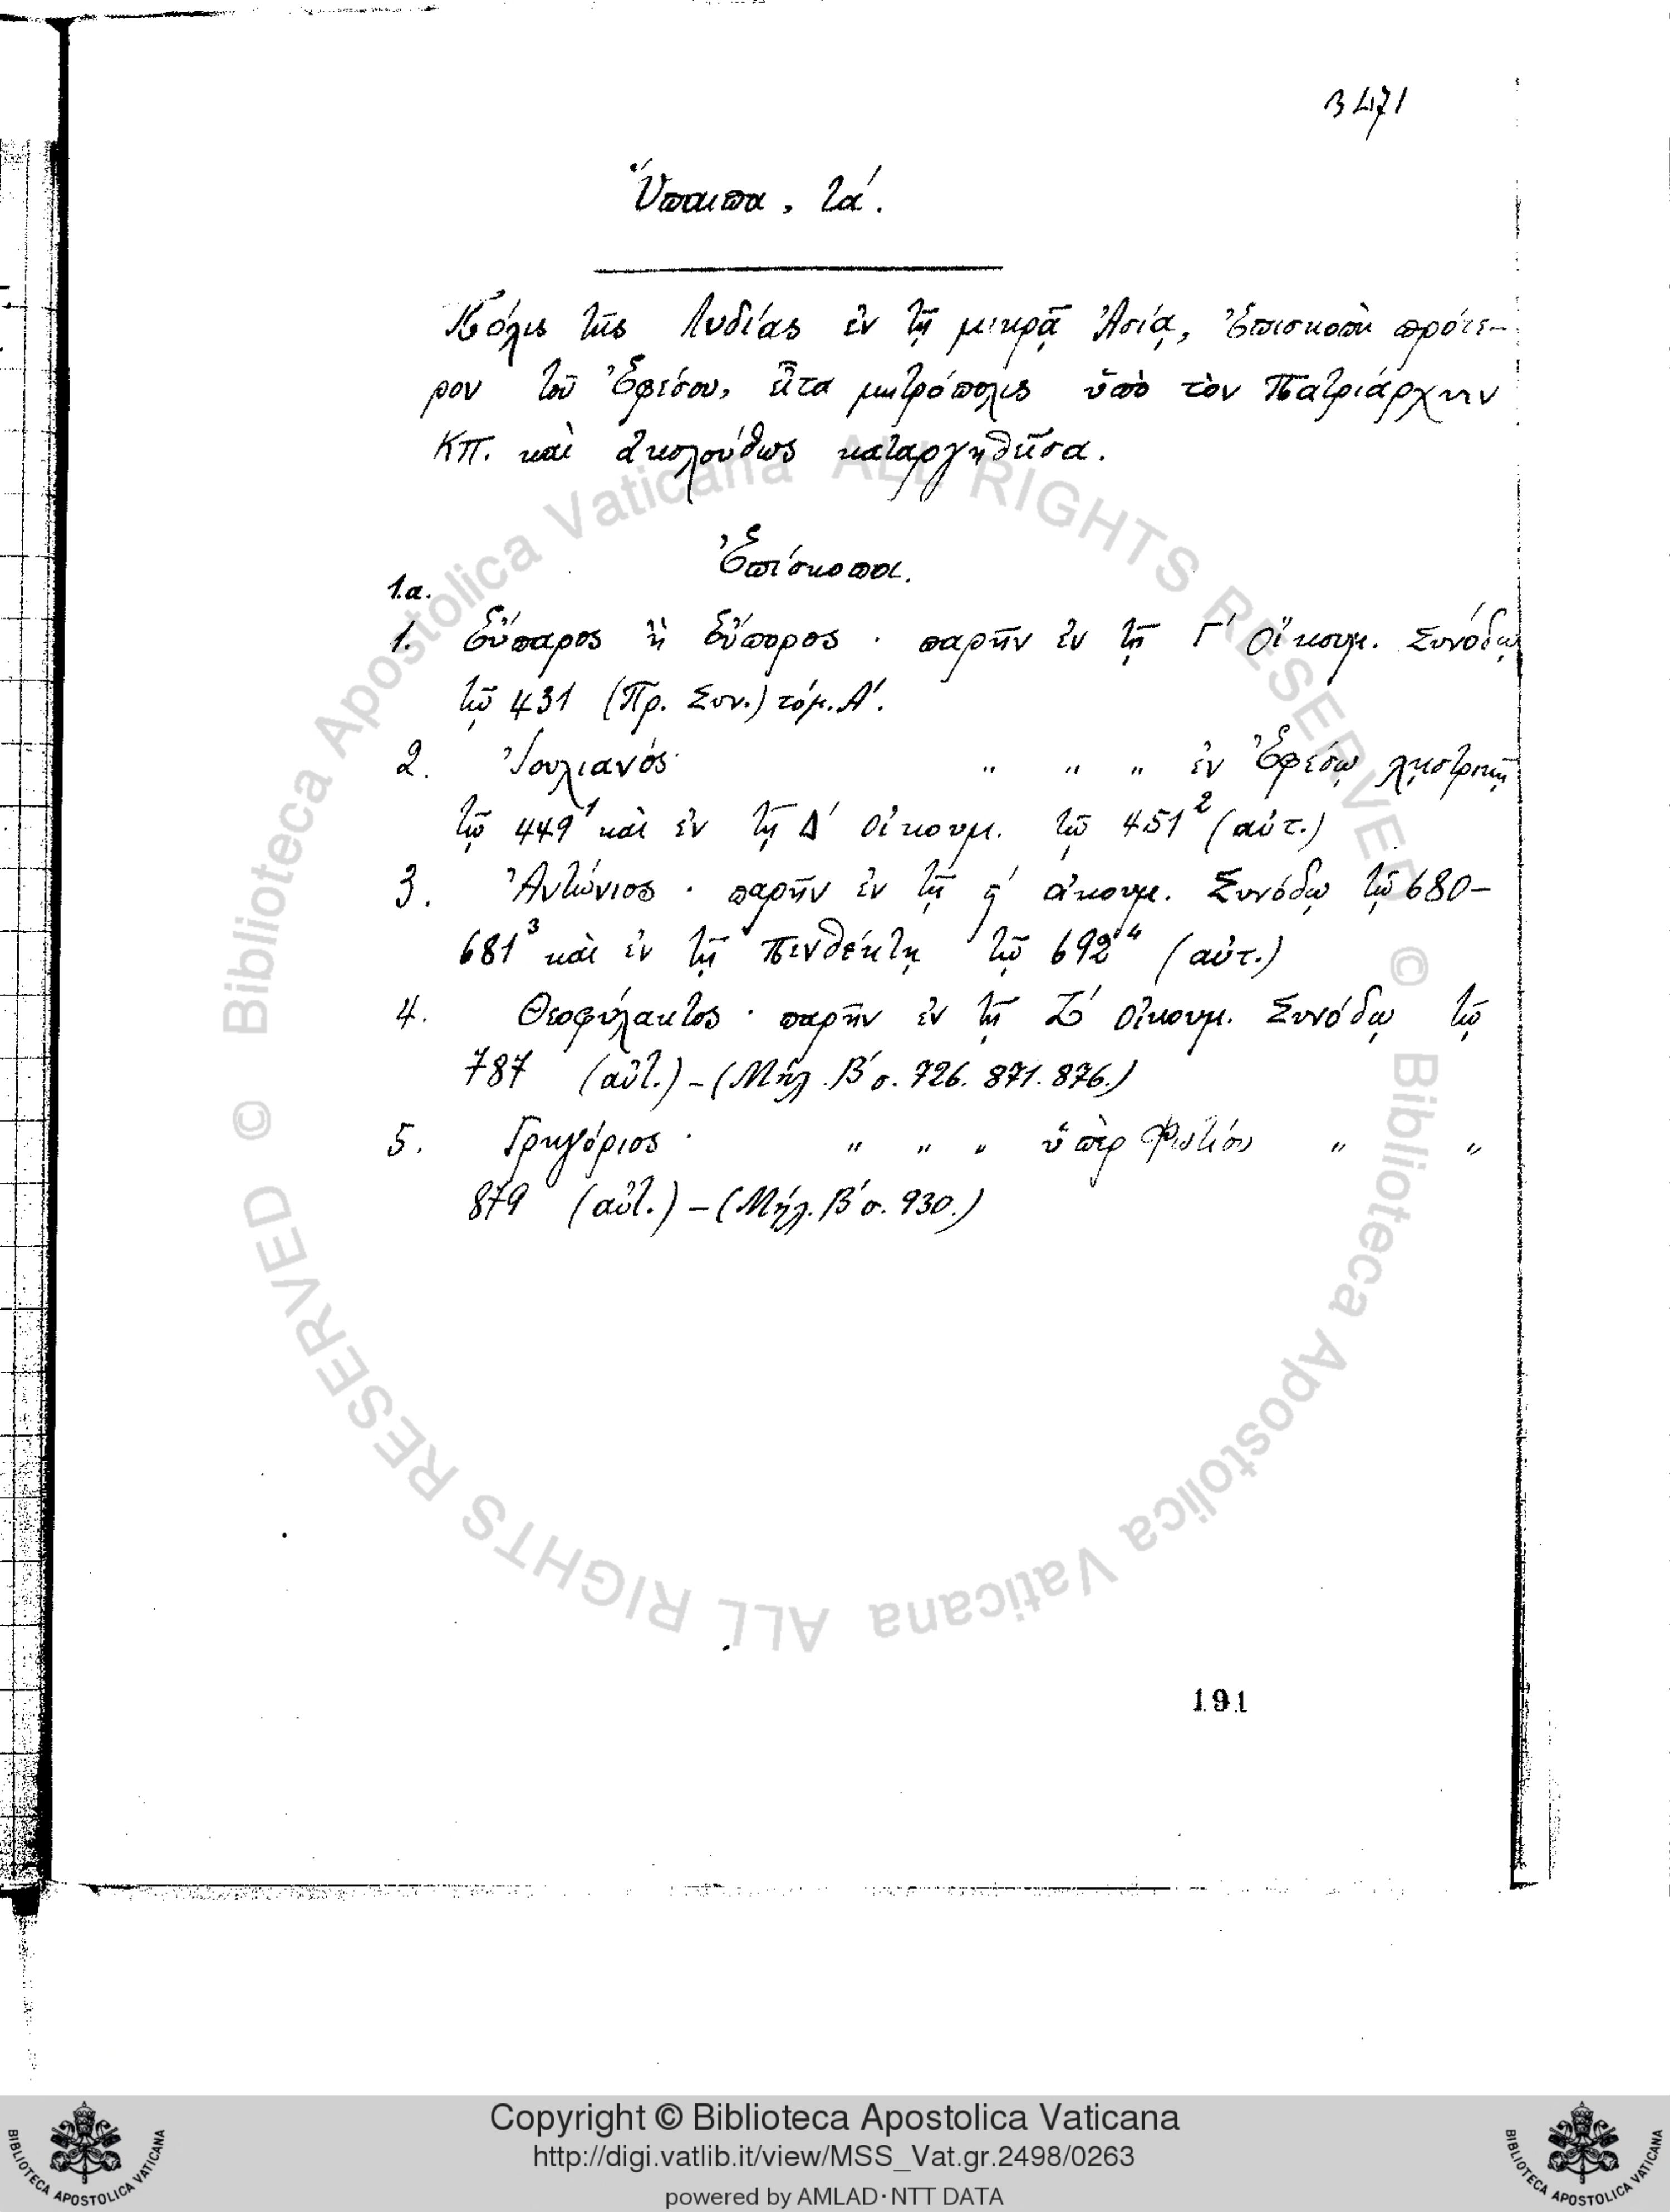 3471
Ὕπαιπα, τά.
Πόλις τῆς Λυδίας ἐν τῇ μικρᾷ Ἀσίᾳ, Ἐπισκοπὴ πρότε-
ρον τοῦ Ἐφέσου, εἶτα μητρόπολις ὑπὸ τὸν Πατριάρχην
ΚΠ. καὶ ἀκολούθως καταργηθεῖσα.
Ἐπίσκοποι.
1.α.
1. Εὔπαρος ἢ Εὔπορος · παρῆν ἐν τῇ Γ΄ Οἰκουμ. Συνόδῳ
τῷ 431 (Πρ. Συν.) τόμ. Α΄.
2. Ἰουλιανός · " " " ἐν Ἐφέσῳ λῃστρικῇ
τῷ 449¹ καὶ ἐν τῇ Δ΄ οἰκουμ. τῷ 451² (αὐτ.)
3. Ἀντώνιος · παρῆν ἐν τῇ ϛ΄ οἰκουμ. Συνόδῳ τῷ 680-
681³ καὶ ἐν τῇ Πενθέκτῃ τῷ 692⁴ (αὐτ.)
4. Θεοφύλακτος · παρῆν ἐν τῇ Ζ΄ οἰκουμ. Συνόδῳ τῷ
787 (αὐτ.) - (Μήλ. Β΄ σ. 726. 871. 876.)
5. Γρηγόριος · " " " ὑπὲρ Φωτίου " "
879 (αὐτ.) - (Μήλ. Β΄ σ. 930.)
191
© Biblioteca Apostolica Vaticana ALL RIGHTS RESERVED © Biblioteca Apostolica Vaticana ALL RIGHTS RESERVED
Copyright © Biblioteca Apostolica Vaticana
http://digi.vatlib.it/view/MSS_Vat.gr.2498/0263
powered by AMLAD·NTT DATA
BIBLIOTECA APOSTOLICA VATICANA
BIBLIOTECA APOSTOLICA VATICANA